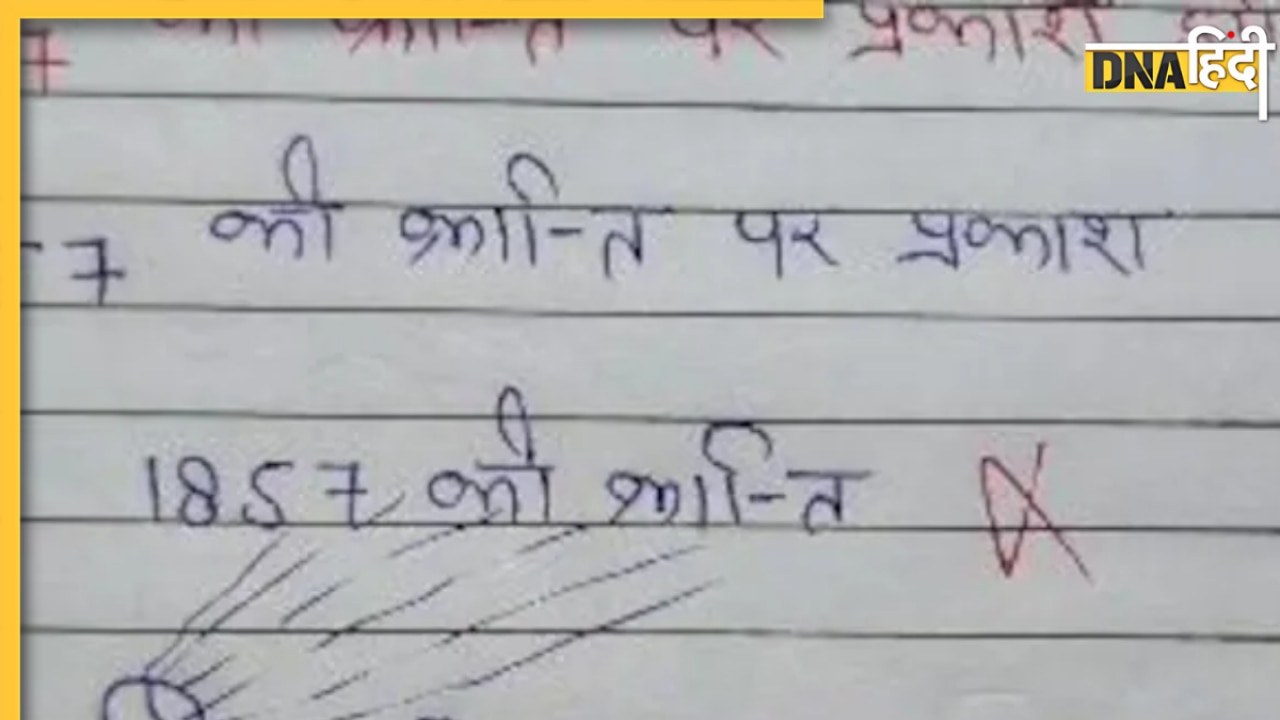 7 की क्रान्ति पर प्रकाश
DNA हिंदी
7 की क्रान्ति पर प्रकाश
1857 की क्रान्ति